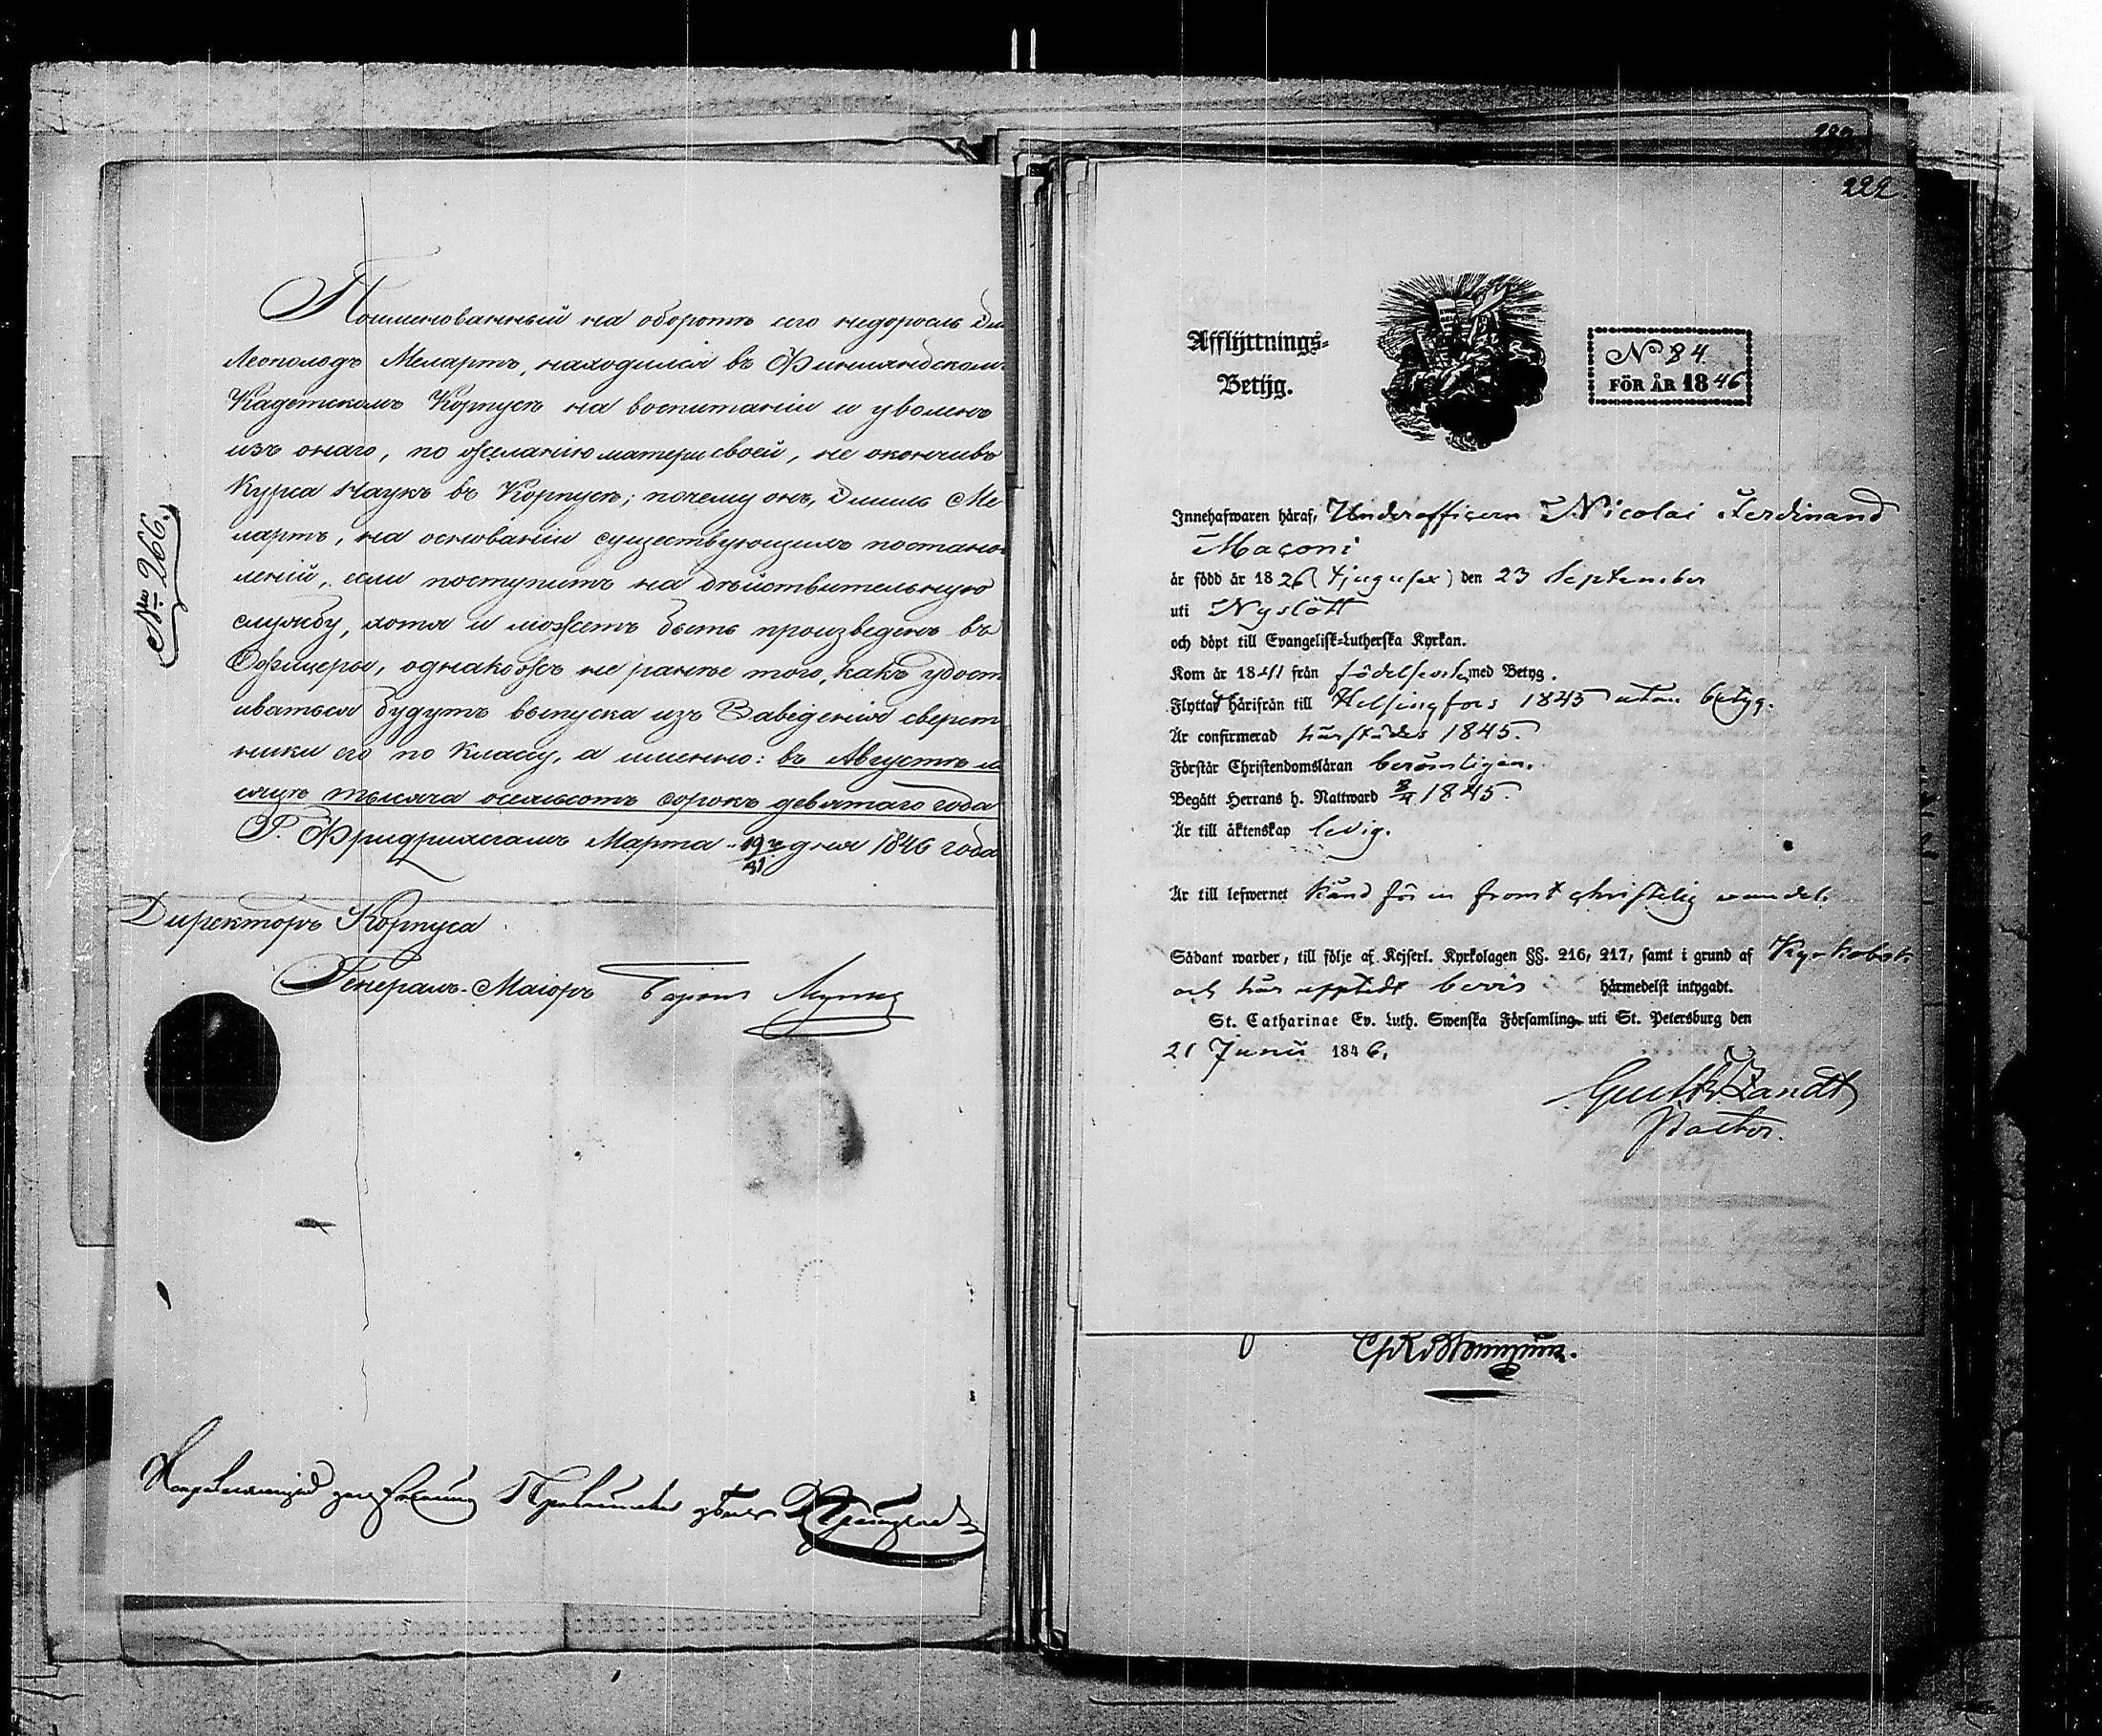 № 266.
Поименованный на оборотѣ сего недоросль Эми
Леопольдъ Мелартъ, находился въ Финляндском
Кадетскомъ Корпусѣ на воспитаніи и уволенъ
изъ онаго, по желанію матери своей, не окончивъ
Курса Наукъ въ Корпусѣ; почему онъ, Эмиль Ме
лартъ, на основаніи существующихъ постанов
леній, если поступитъ на дѣйствительную
службу, хотя и можетъ быть произведенъ въ
Офицеры, однакожъ не ранѣе того, какъ удост
иваться будутъ выпуска изъ Заведенія сверст
ники его по Классу, а именно: въ Августѣ м
сяцѣ тысяча осемьсотъ сорокъ девятаго года
Г. Фридрихсгамъ Марта 19/31 дня 1846 года
Директоръ Корпуса
Генералъ-Маіоръ Баронъ Мункъ
222.
Afflyttnings-
Betyg.
No 84
FÖR ÅR 1846
Innehafwaren häraf, Underofficern Nicolai Ferdinand
Maconi
är född år 1826 (tjugusex) den 23 September
uti Nyslott
och döpt till Evangelisk-Lutherska Kyrkan.
Kom år 1841 från födelseort med Betyg.
Flyttat härifrån till Helsingfors 1845 utan betyg.
Är confirmerad härstädes 1845.
Förstår Christendomsläran berömligen.
Begått Herrans h. Nattward 1845.
Är till äktenskap ledig.
Är till lefwernet känd för en from & christelig wandel.
Sådant warder, till följe af Kejserl. Kyrkolagen §§. 216, 217, samt i grund af Kyrkobok
och här uppted bevis härmedelst intygadt.
St. Catharinae Ev. Luth. Swenska Församling uti St. Petersburg den
21 Junii 1846.
Gust. Fr. Zandt
Pastor.